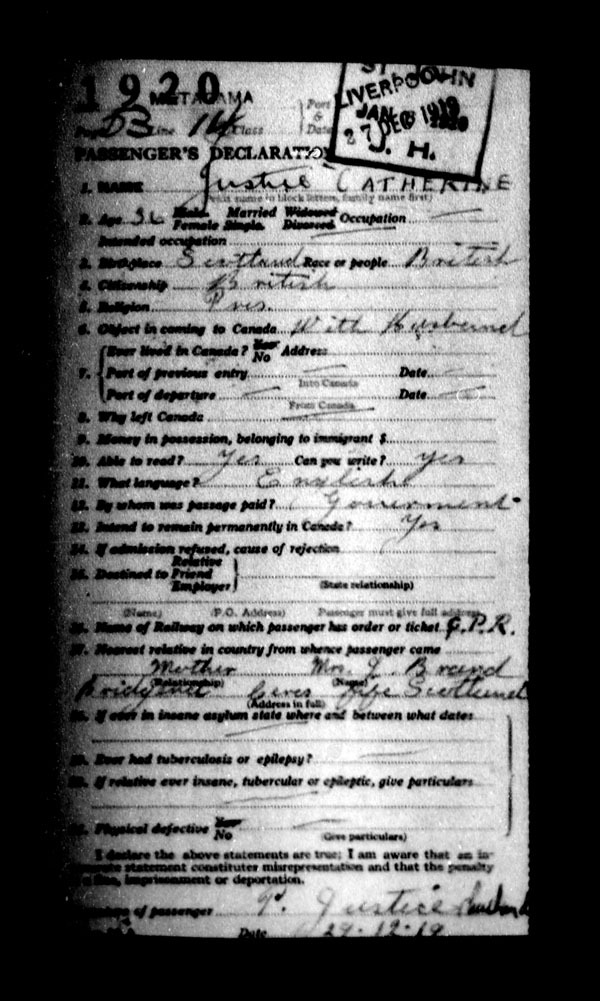 1920
METAGAMA
ST. JOHN
LIVERPOOL
JAN
27 DEC 1919 1920
J. H.
Port
&
Date
Class
PASSENGER'S DECLARATION
1. NAME Justice CATHERINE
(Print name in block letters, family name first)
2. Age 36 Male. Married Widowed Occupation
Female Single. Divorced
Intended occupation
3. Birthplace Scotland Race or people British
4. Citizenship British
5. Religion Pres.
6. Object in coming to Canada With Husbend
7. Ever lived in Canada? Yes No Address
Port of previous entry Date
Into Canada
Port of departure Date
From Canada
8. Why left Canada
9. Money in possession, belonging to immigrant $
10. Able to read? Yes Can you write? yes
11. What language? English
12. By whom was passage paid? Goverment
13. Intend to remain permanently in Canada? Yes
14. If admission refused, cause of rejection
15. Destined to Relative Friend Employer
(State relationship)
(Name) (P.O. Address) Passenger must give full address
16. Name of Railway on which passenger has order or ticket C.P.R.
17. Nearest relative in country from whence passenger came
Mother Mrs. Brand
(Relationship) (Name)
Ceres Fife Scotland
(Address in full)
18. If ever in insane asylum state where and between what dates
19. Ever had tuberculosis or epilepsy?
20. If relative ever insane, tubercular or epileptic, give particulars
21. Physical defective Yes No
(Give particulars)
I declare the above statements are true; I am aware that an in-
statement constitutes misrepresentation and that the penalty
is fine, imprisonment or deportation.
Signature of passenger Justice Husband
Date 29-12-19